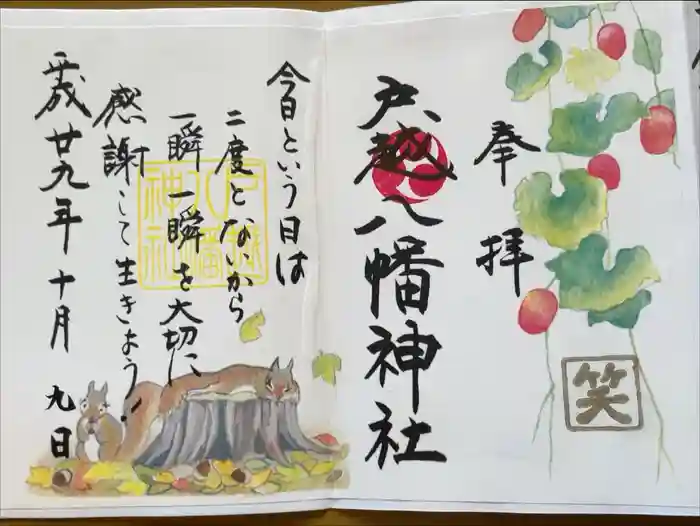 奉拝
戸越八幡神社
笑
今日という日は
二度とないから
一瞬一瞬を大切に
感謝して生きよう!
平成廿九年十月九日
戸越
八幡
神社